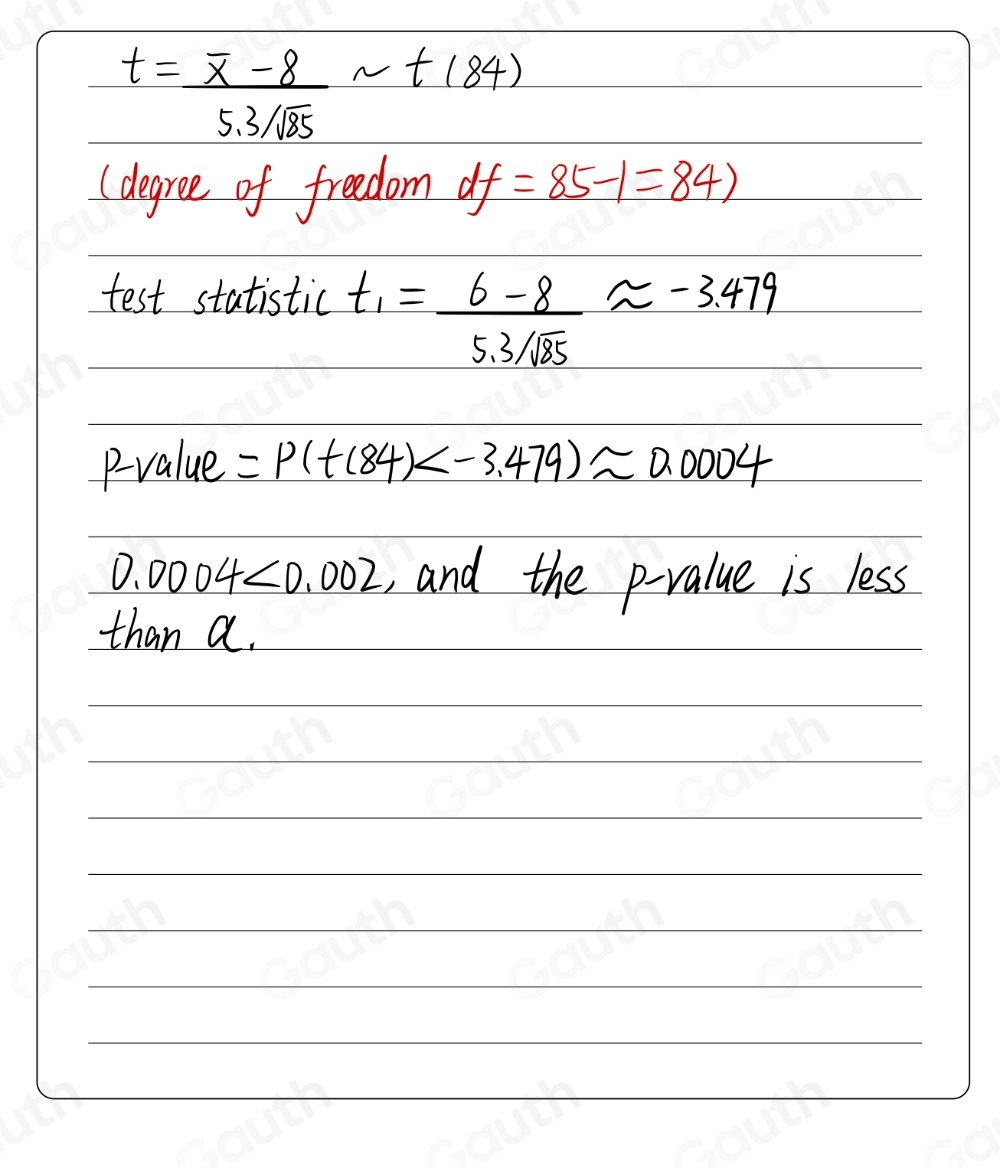 t = x̄ - 8 / 5.3/√85 ~ t(84)
(degree of freedom df = 85-1 = 84)
test statistic t₁ = 6 - 8 / 5.3/√85 ≈ -3.479
p-value = P(t(84)<-3.479) ≈ 0.0004
0.0004<0.002, and the p-value is less
than α.